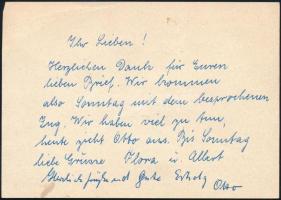 Ihr Lieben!
Herzlichen Dank für Euren
lieben Brief. Wir kommen
also Sonntag mit dem besprochenen
Zug. Wir haben viel zu tun,
heute zieht Otto aus. Bis Sonntag
liebe Grüsse Flora u. Albert
Otto